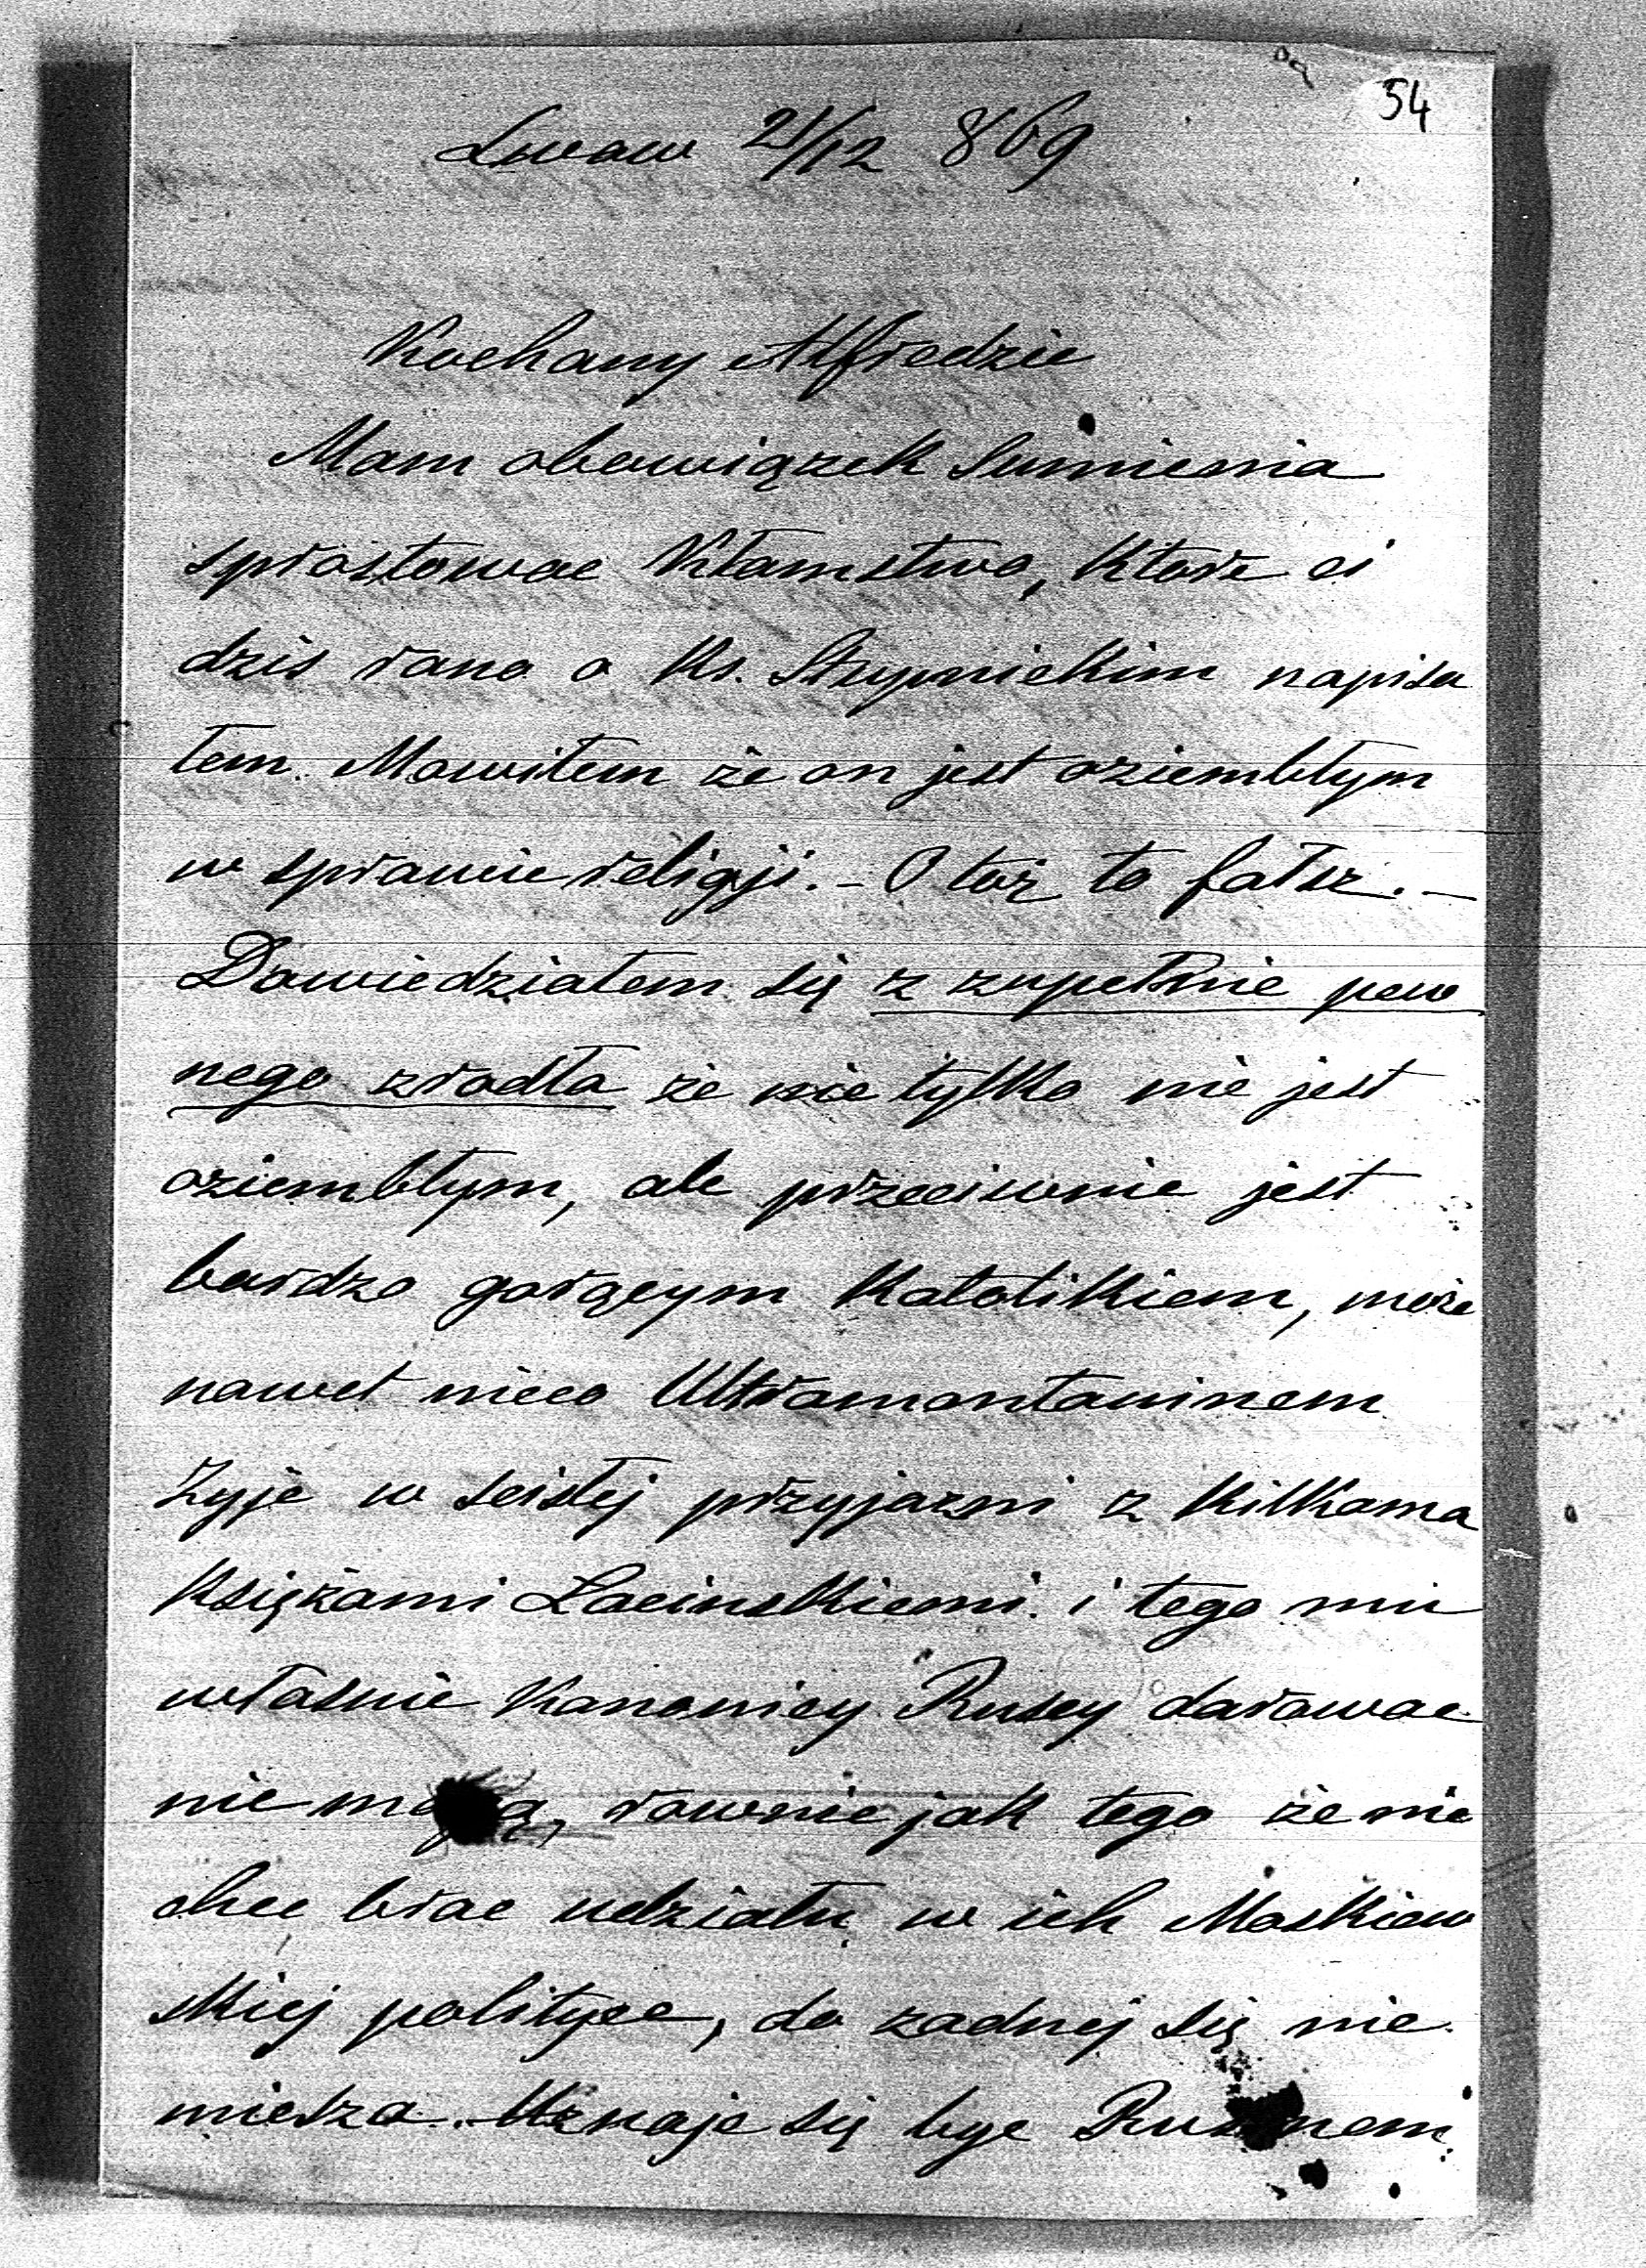 54
Lwow 21/12 869
Kochany Alfredzie
Mam obowiązek sumienia
sprostowac kłamstwo, ktore ci
dzis rano o Ks. Stupnickim napisa
łem. Mowiłem że on jest oziembłym
w sprawie religji. - O toż to fałsz. -
Dowiedziałem się z zupełnie pew
nego zrodła że nie tylko nie jest
oziembłym, ale przeciwnie jest
bardzo gorącym Katolikiem, może
nawet nieco Ultramontaninem
Żyje w scisłej przyjazni z kilkoma
Księżami Łacinskiemi i tego mu
własnie Kanonicy Ruscy darowac
nie mogą, rownie jak tego że nie
chce brac udziału w ich Moskiew
skiej polityce, do zadnej się nie
miesza. Uznaje się byc Rusinem